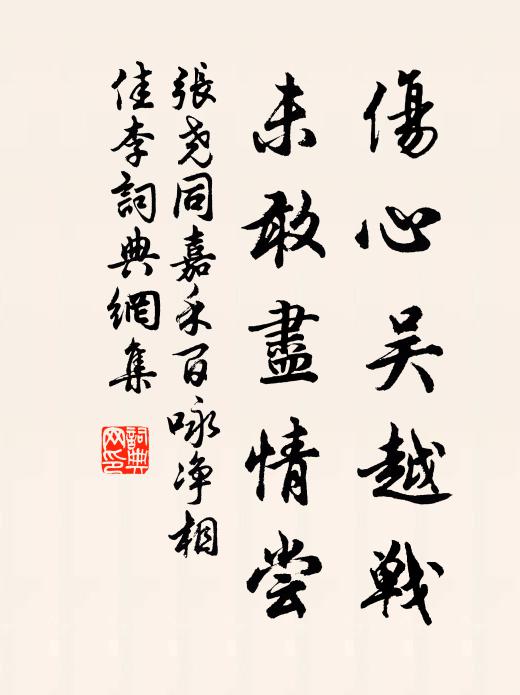 傷心吴越戰
未敢盡情尝
張堯同嘉禾百咏净相
佳李詞典網集
詞典网印